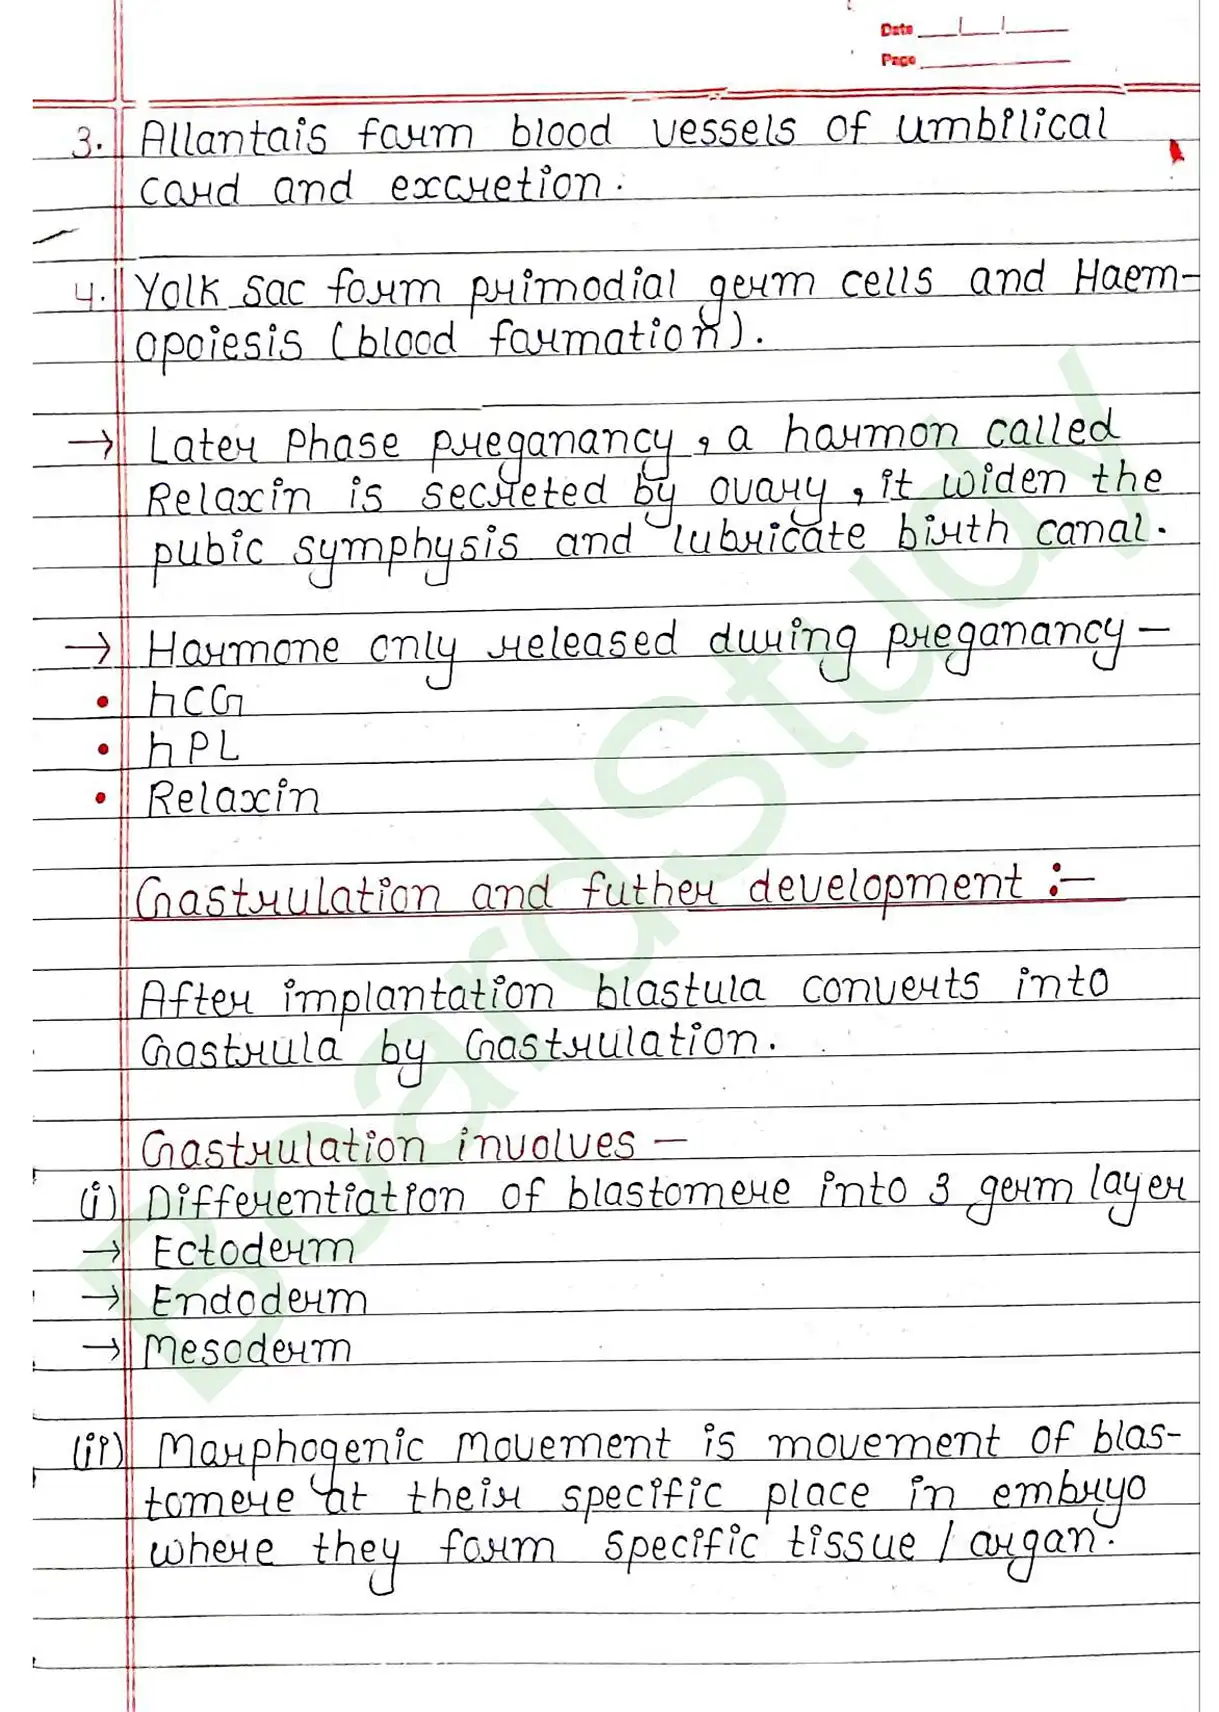 Date
Page
3. Allantais farm blood vessels of umbilical
card and excretion.
4. Yolk sac form primodial germ cells and Haem-
opoiesis (blood farmation).
→ Later Phase preganancy, a harmon called
Relaxin is secreted by ovary, it widen the
pubic symphysis and lubricate birth canal.
→ Harmone only released during preganancy -
• hCG
• hPL
• Relaxin
Gastrulation and futher development :-
After implantation blastula converts into
Gastrula by Gastrulation.
Gastrulation involves -
(i) Differentiation of blastomere into 3 germ layer
→ Ectoderm
→ Endoderm
→ Mesoderm
(ii) Marphogenic movement is movement of blas-
tomere at their specific place in embryo
where they form specific tissue / argan.
BoardStudy